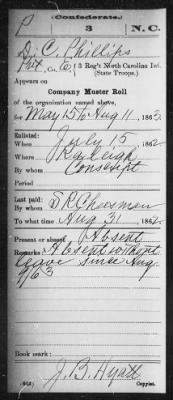 (Confederate.)
P 3 N. C.
D. C. Phillips
Pvt, Co. E, 3 Reg't North Carolina Inf.
(State Troops.)
Appears on
Company Muster Roll
of the organization named above,
for May 15 to Aug 11, 1863.
Enlisted:
When July 15, 1862
Where Raleigh
By whom Conscript
Period
Last paid:
By whom S R Chesman
To what time Aug 31, 1862
Present or absent Absent
Remarks: Absent without
leave since Aug.
/63
Book mark:
J. B. Hyatt
Copyist.